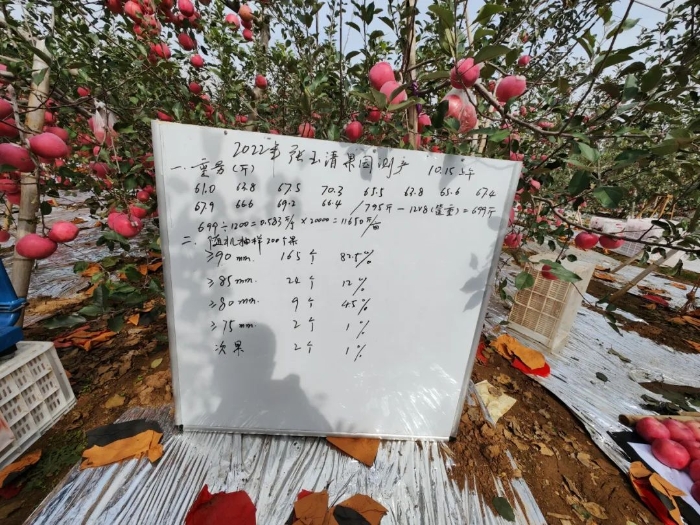 2022年 张玉清果园测产 10.15上午
一. 重量(斤)
61.0 63.8 67.5 70.3 65.5 63.8 65.6 67.4
67.9 66.6 69.2 66.4 / 795斤-12×8(筐重)=699斤
699÷1200=0.583斤/个×20000=11650斤/亩
二. 随机抽样200个果
≥90mm. 165个 82.5%
≥85mm. 24个 12%
≥80mm. 9个 4.5%
≥75mm. 2个 1%
次果 2个 1%